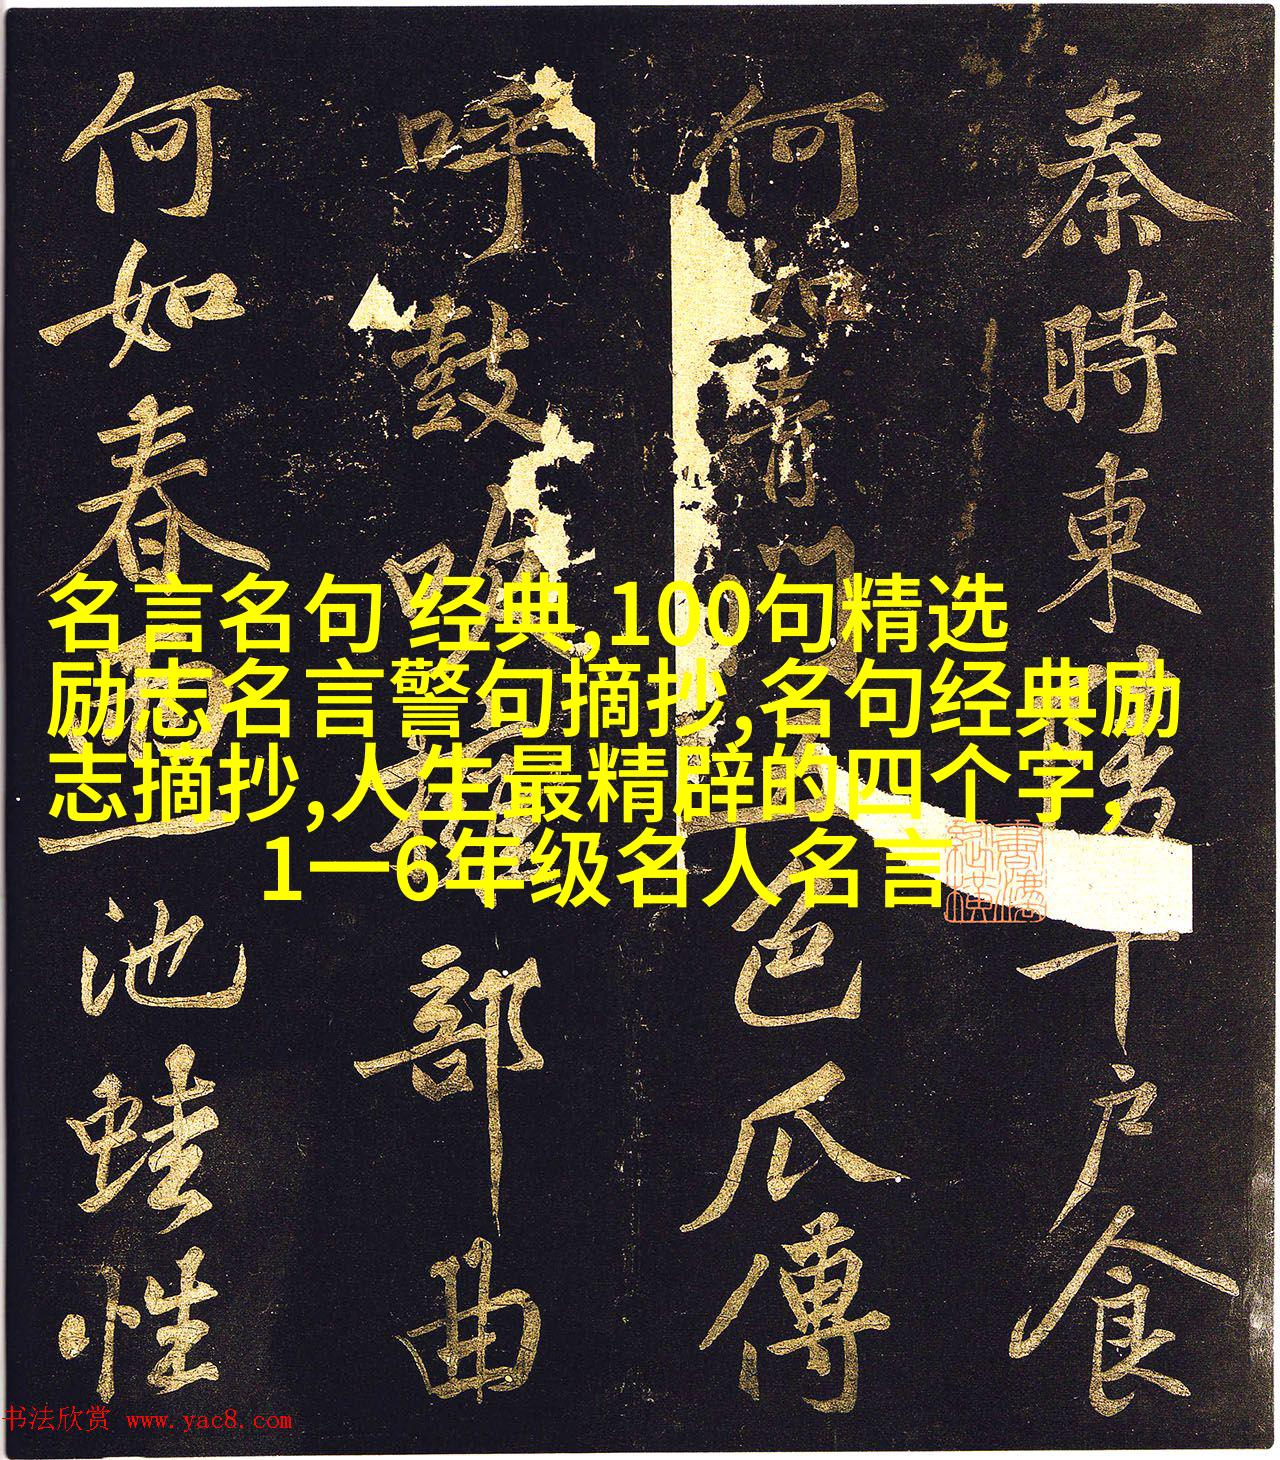 秦時東千戶食
何如青門色瓜傳
呼鼓吹部曲
何如春雨一池蛙性
名言名句 经典,100句精选
励志名言警句摘抄,名句经典励
志摘抄,人生最精辟的四个字,
1一6年级名人名言
书法欣赏 www.yac8.com